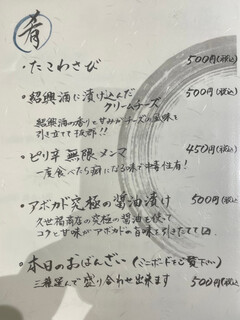 肴
・たこわさび 500円(税込)
・紹興酒に漬け込んだ
クリームチーズ 500円(税込)
紹興酒の香りと甘みがチーズの風味を
引き立てて抜群!!
・ピリ辛無限メンマ 450円(税込)
一度食べたら癖になる味で中毒性有!
・アボカド究極の醤油漬け 500円(税込)
久世福商店の究極の醤油を使って
コクと甘味がアボカドの旨味を引きたてて
・本日のおばんざい(ミニボードをご覧下さい)
三種選んで盛り合わせ出来ます 500円(税込)